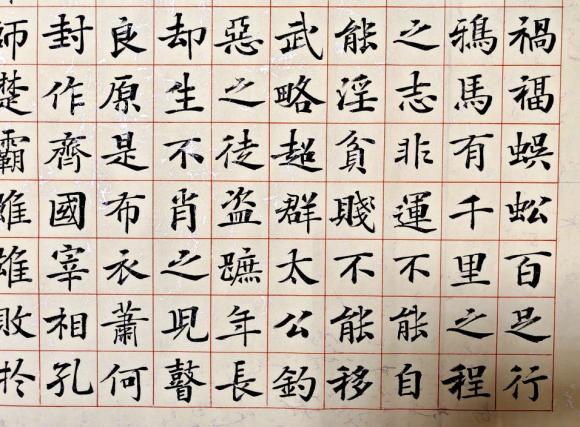 禍福蜈蚣百足行
鴉馬有千里之程
之志非運不能自
能淫貧賤不能移
武略超群太公釣
惡之徒盜蹠年長
却生不肖之児瞽
良原是布衣蕭何
封作齊國宰相孔
師楚霸雖雄敗扵